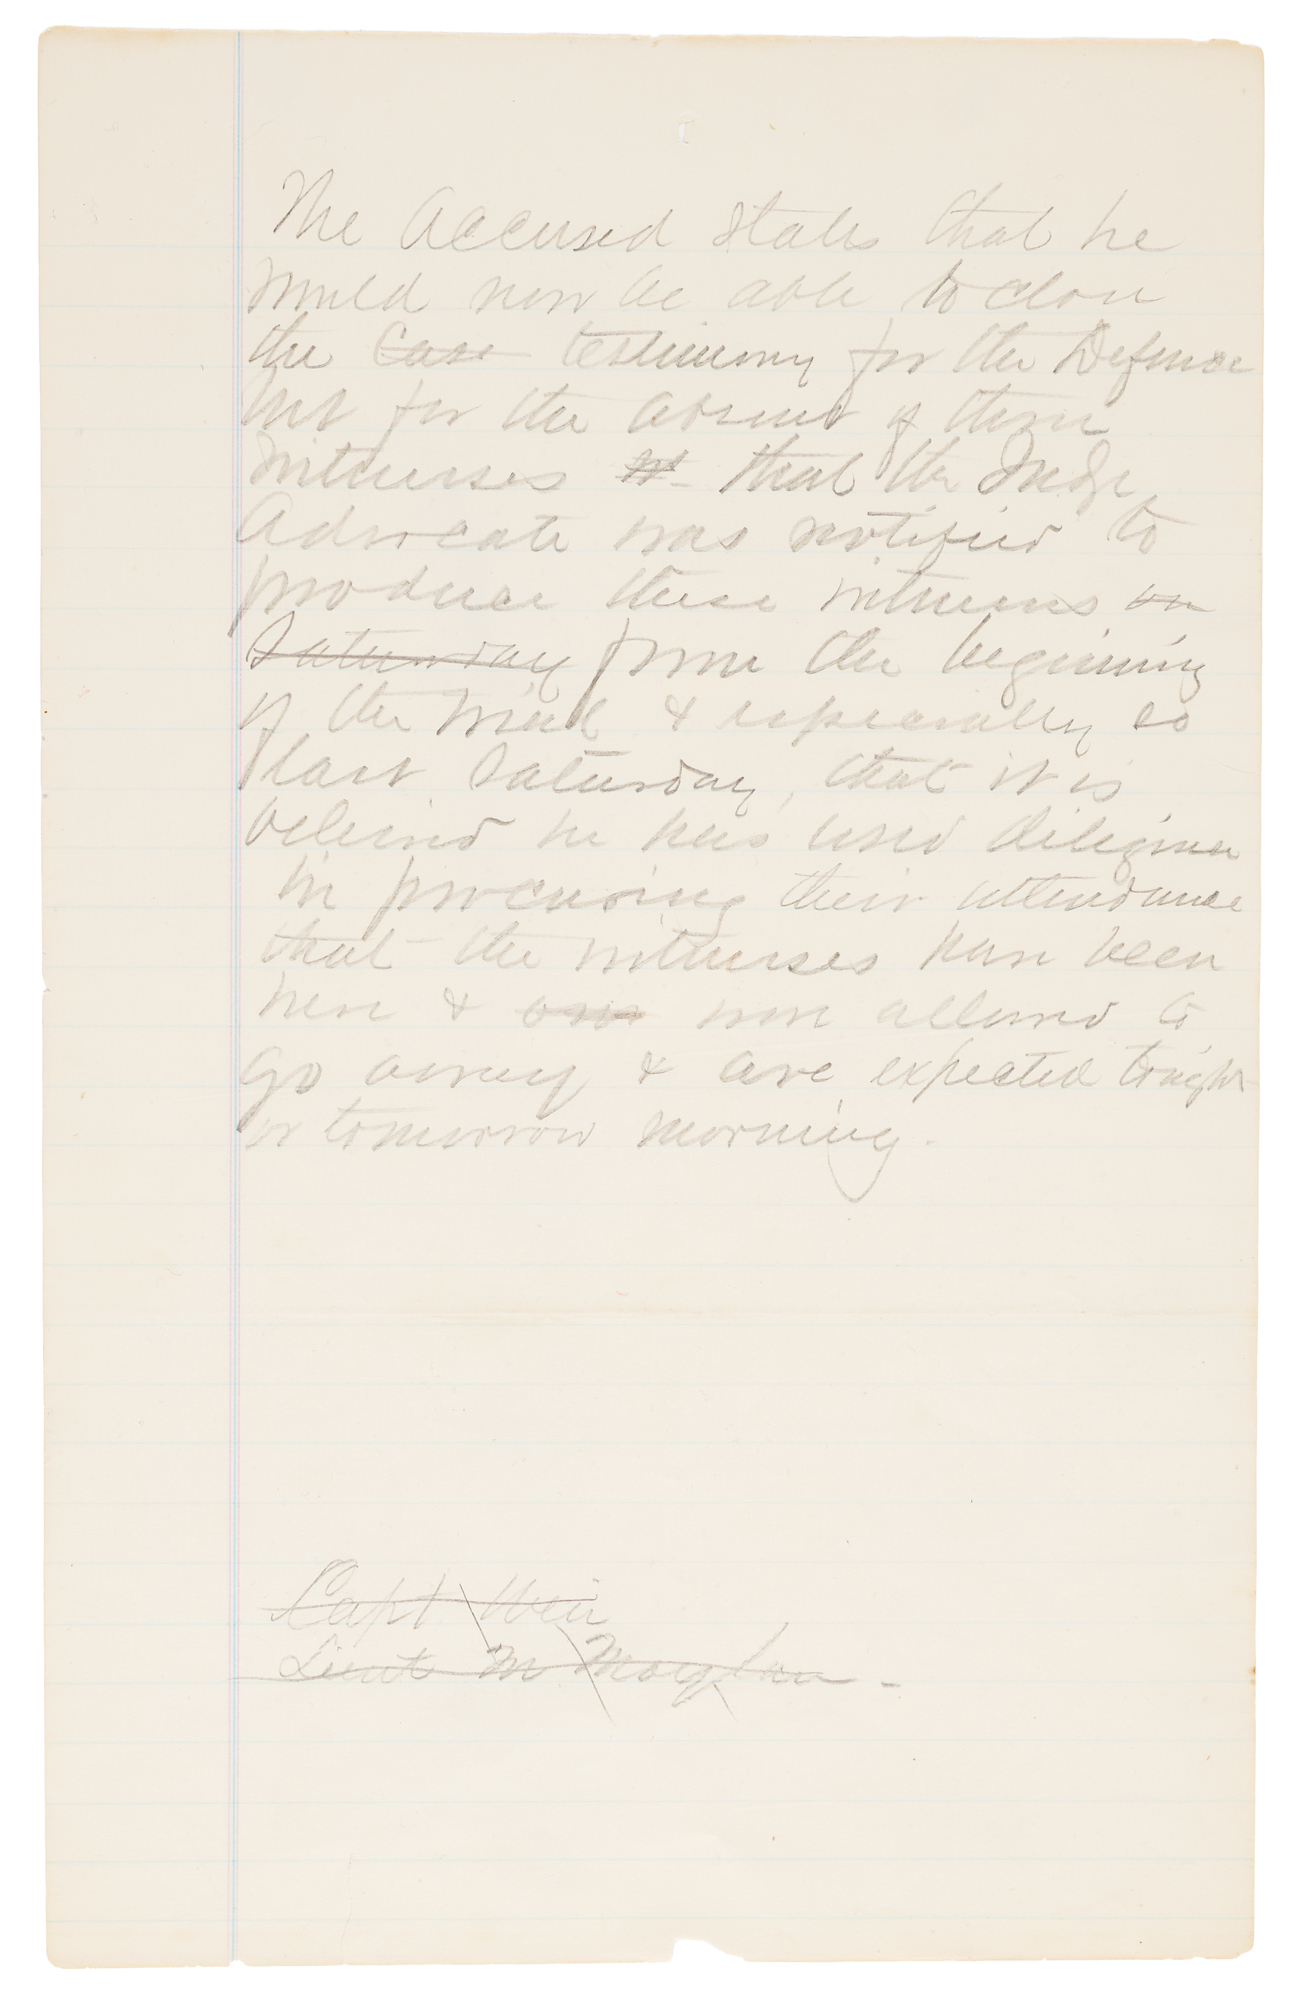 The Accused states that he
would now be able to close
the Case testimony for the Defence
but for the absence of these
witnesses that the Judge
Advocate was notified to
produce these witnesses on
Saturday from the beginning
of the trial & especially so
last Saturday, that it is
believed he has used diligence
in procuring their attendance
that the witnesses have been
here & were allowed to
go away & are expected tonight
or tomorrow morning.
Capt Weir
Lieut M.